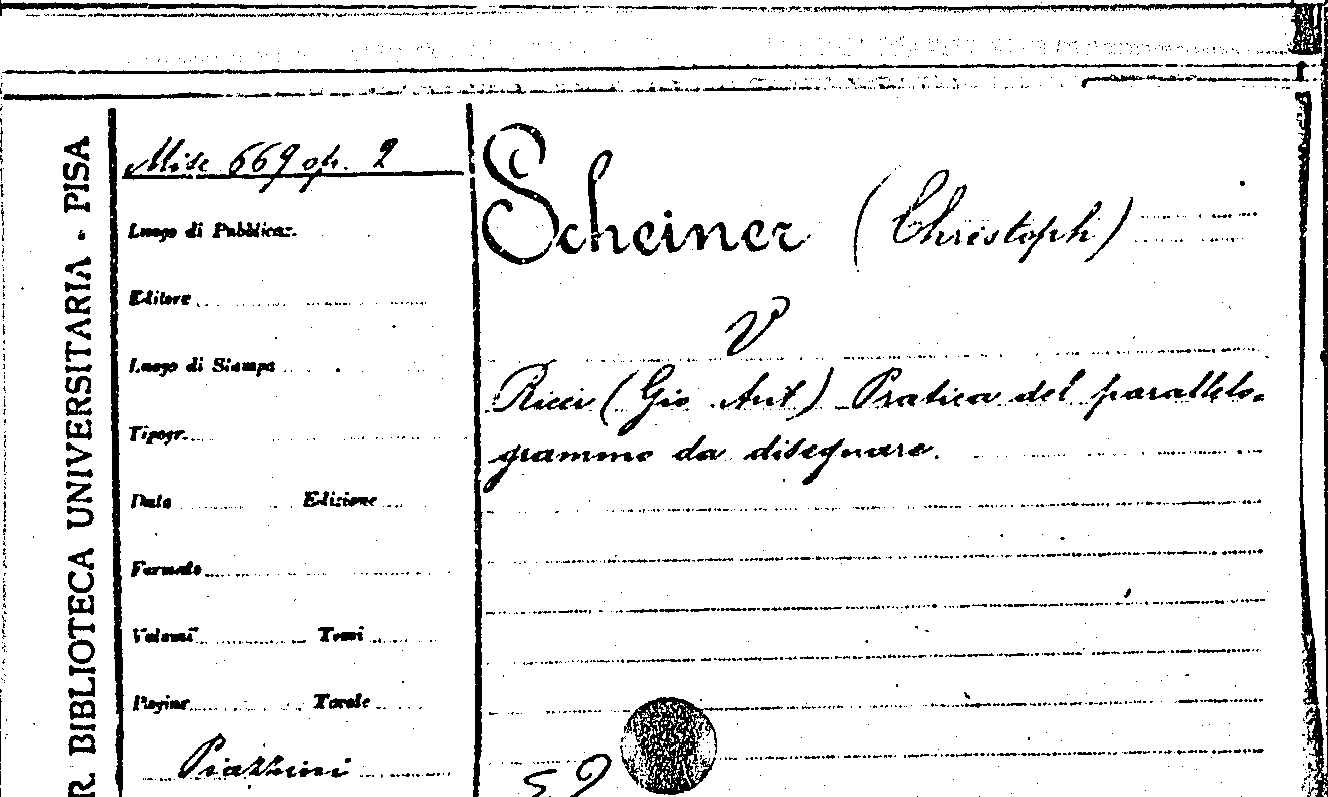 R. BIBLIOTECA UNIVERSITARIA - PISA
Misc 669 op. 2
Luogo di Pubblicaz.
Editore
Luogo di Stampa
Tipogr.
Data Edizione
Formato
Volumi Tomi
Pagine Tavole
Piazzini
Scheiner (Christoph)
V
Ricci (Gio Ant) Pratica del parallelo-
grammo da disegnare.
59